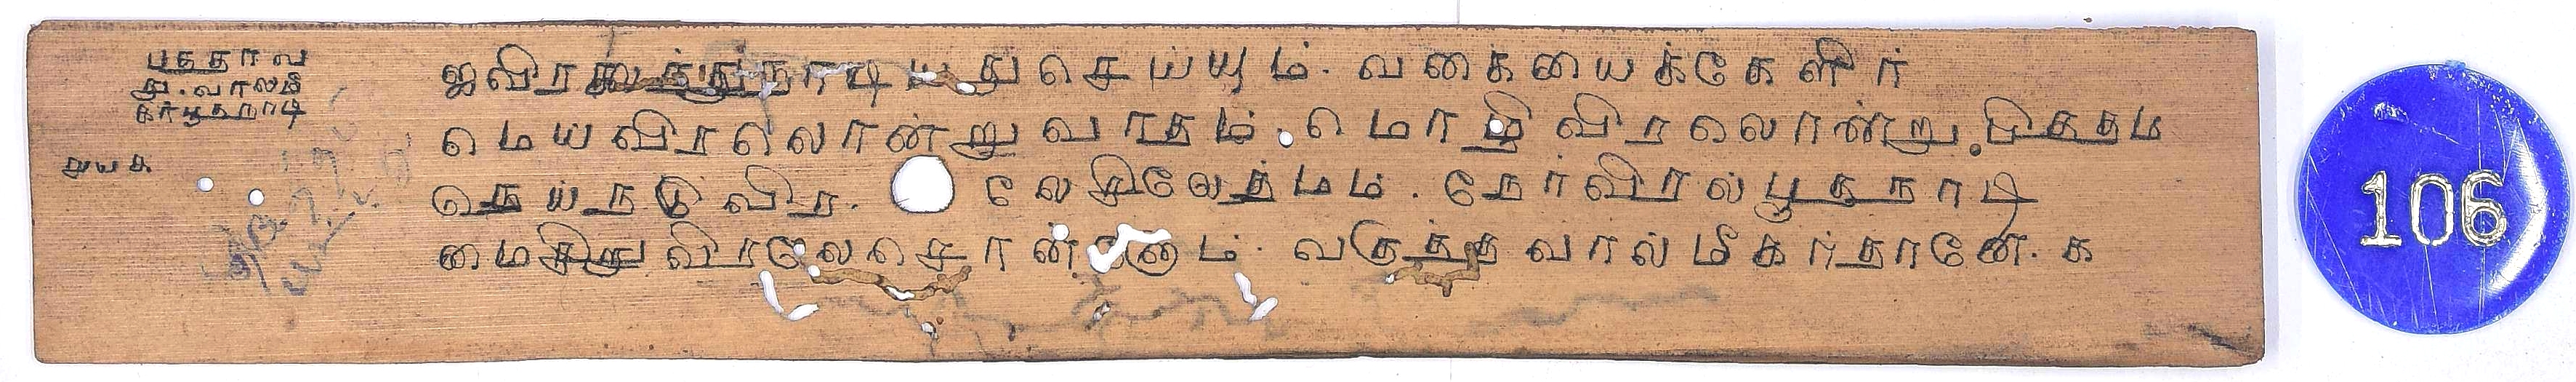 பததாவ
து.வாலமீ
கர்பூதநாடி
துயக
ஐவிரலுக்குநாடியதுசெய்யும். வகையைக்கேளிர்
மெயவிரலொன்றுவாதம். மொழிவிரலொன்று.பித்தம
நெய்நடுவிர. லேசிலேத்மம். நேர்விரல்பூதநாடி
மைசிறுவிரலேசொன்னோம். வகுத்தவால்மீகர்தானே.க
106